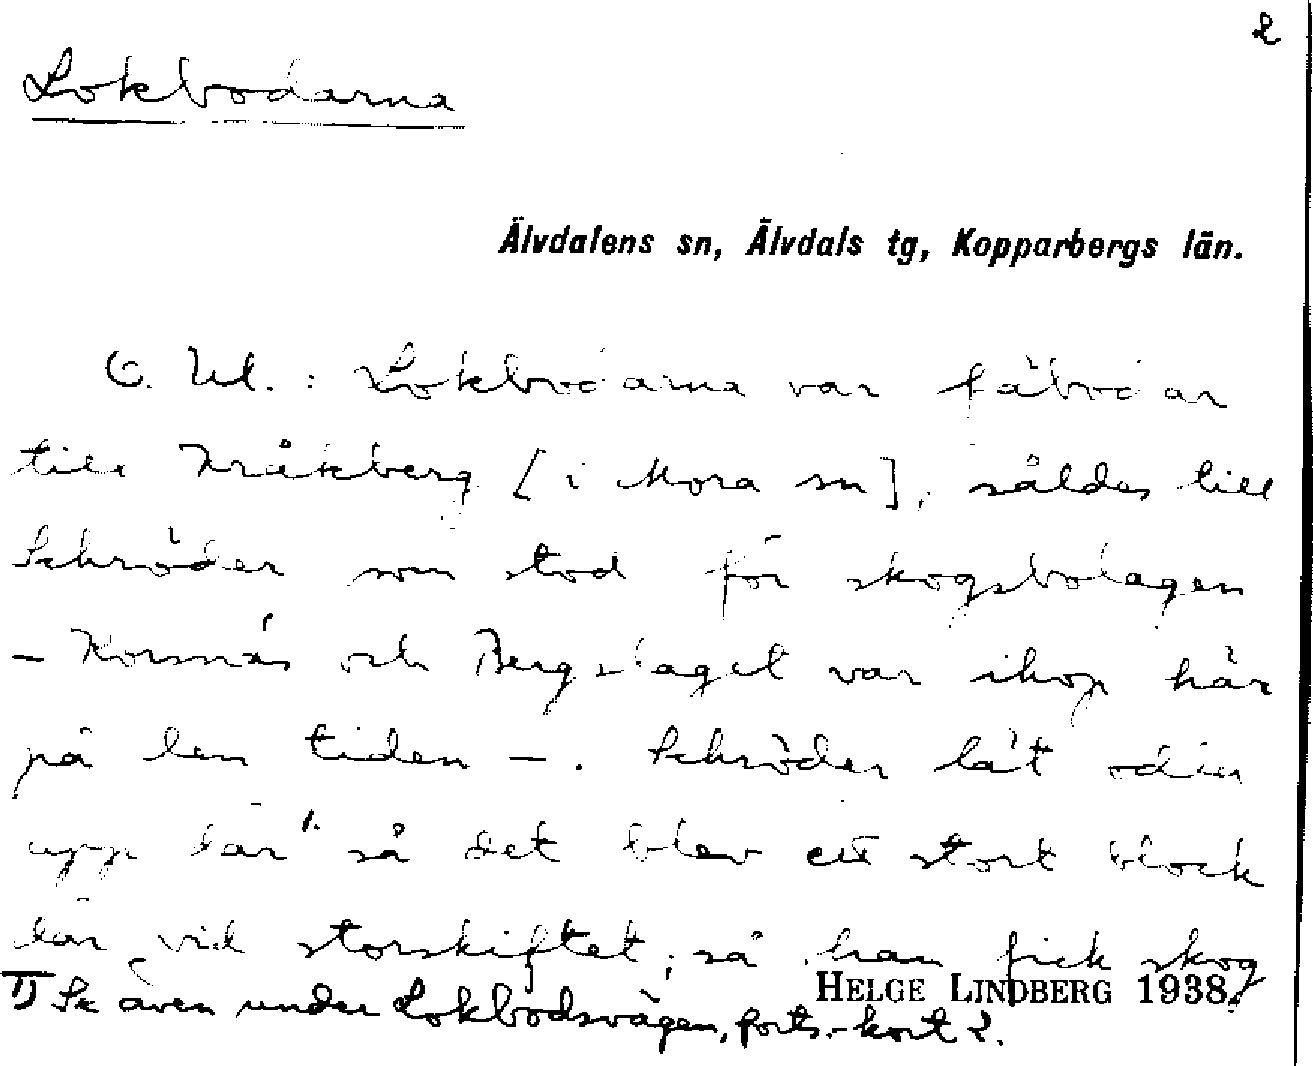 2
Lokbodarna
Älvdalens sn, Älvdals tg, Kopparbergs län.
Lokbodarna var fäbodar
till Kråkberg [i Mora sn], såldes till
Schröder som stod för skogsbolagen
– Korsnäs och Bergslaget var ihop här
på den tiden –. Schröder lät odla
upp där¹⁾ så det blev ett stort block
där vid storskiftet, så han fick skog
HELGE LINDBERG 1938.
1) Se även under Lokbodsvägen, forts.-kort 2.